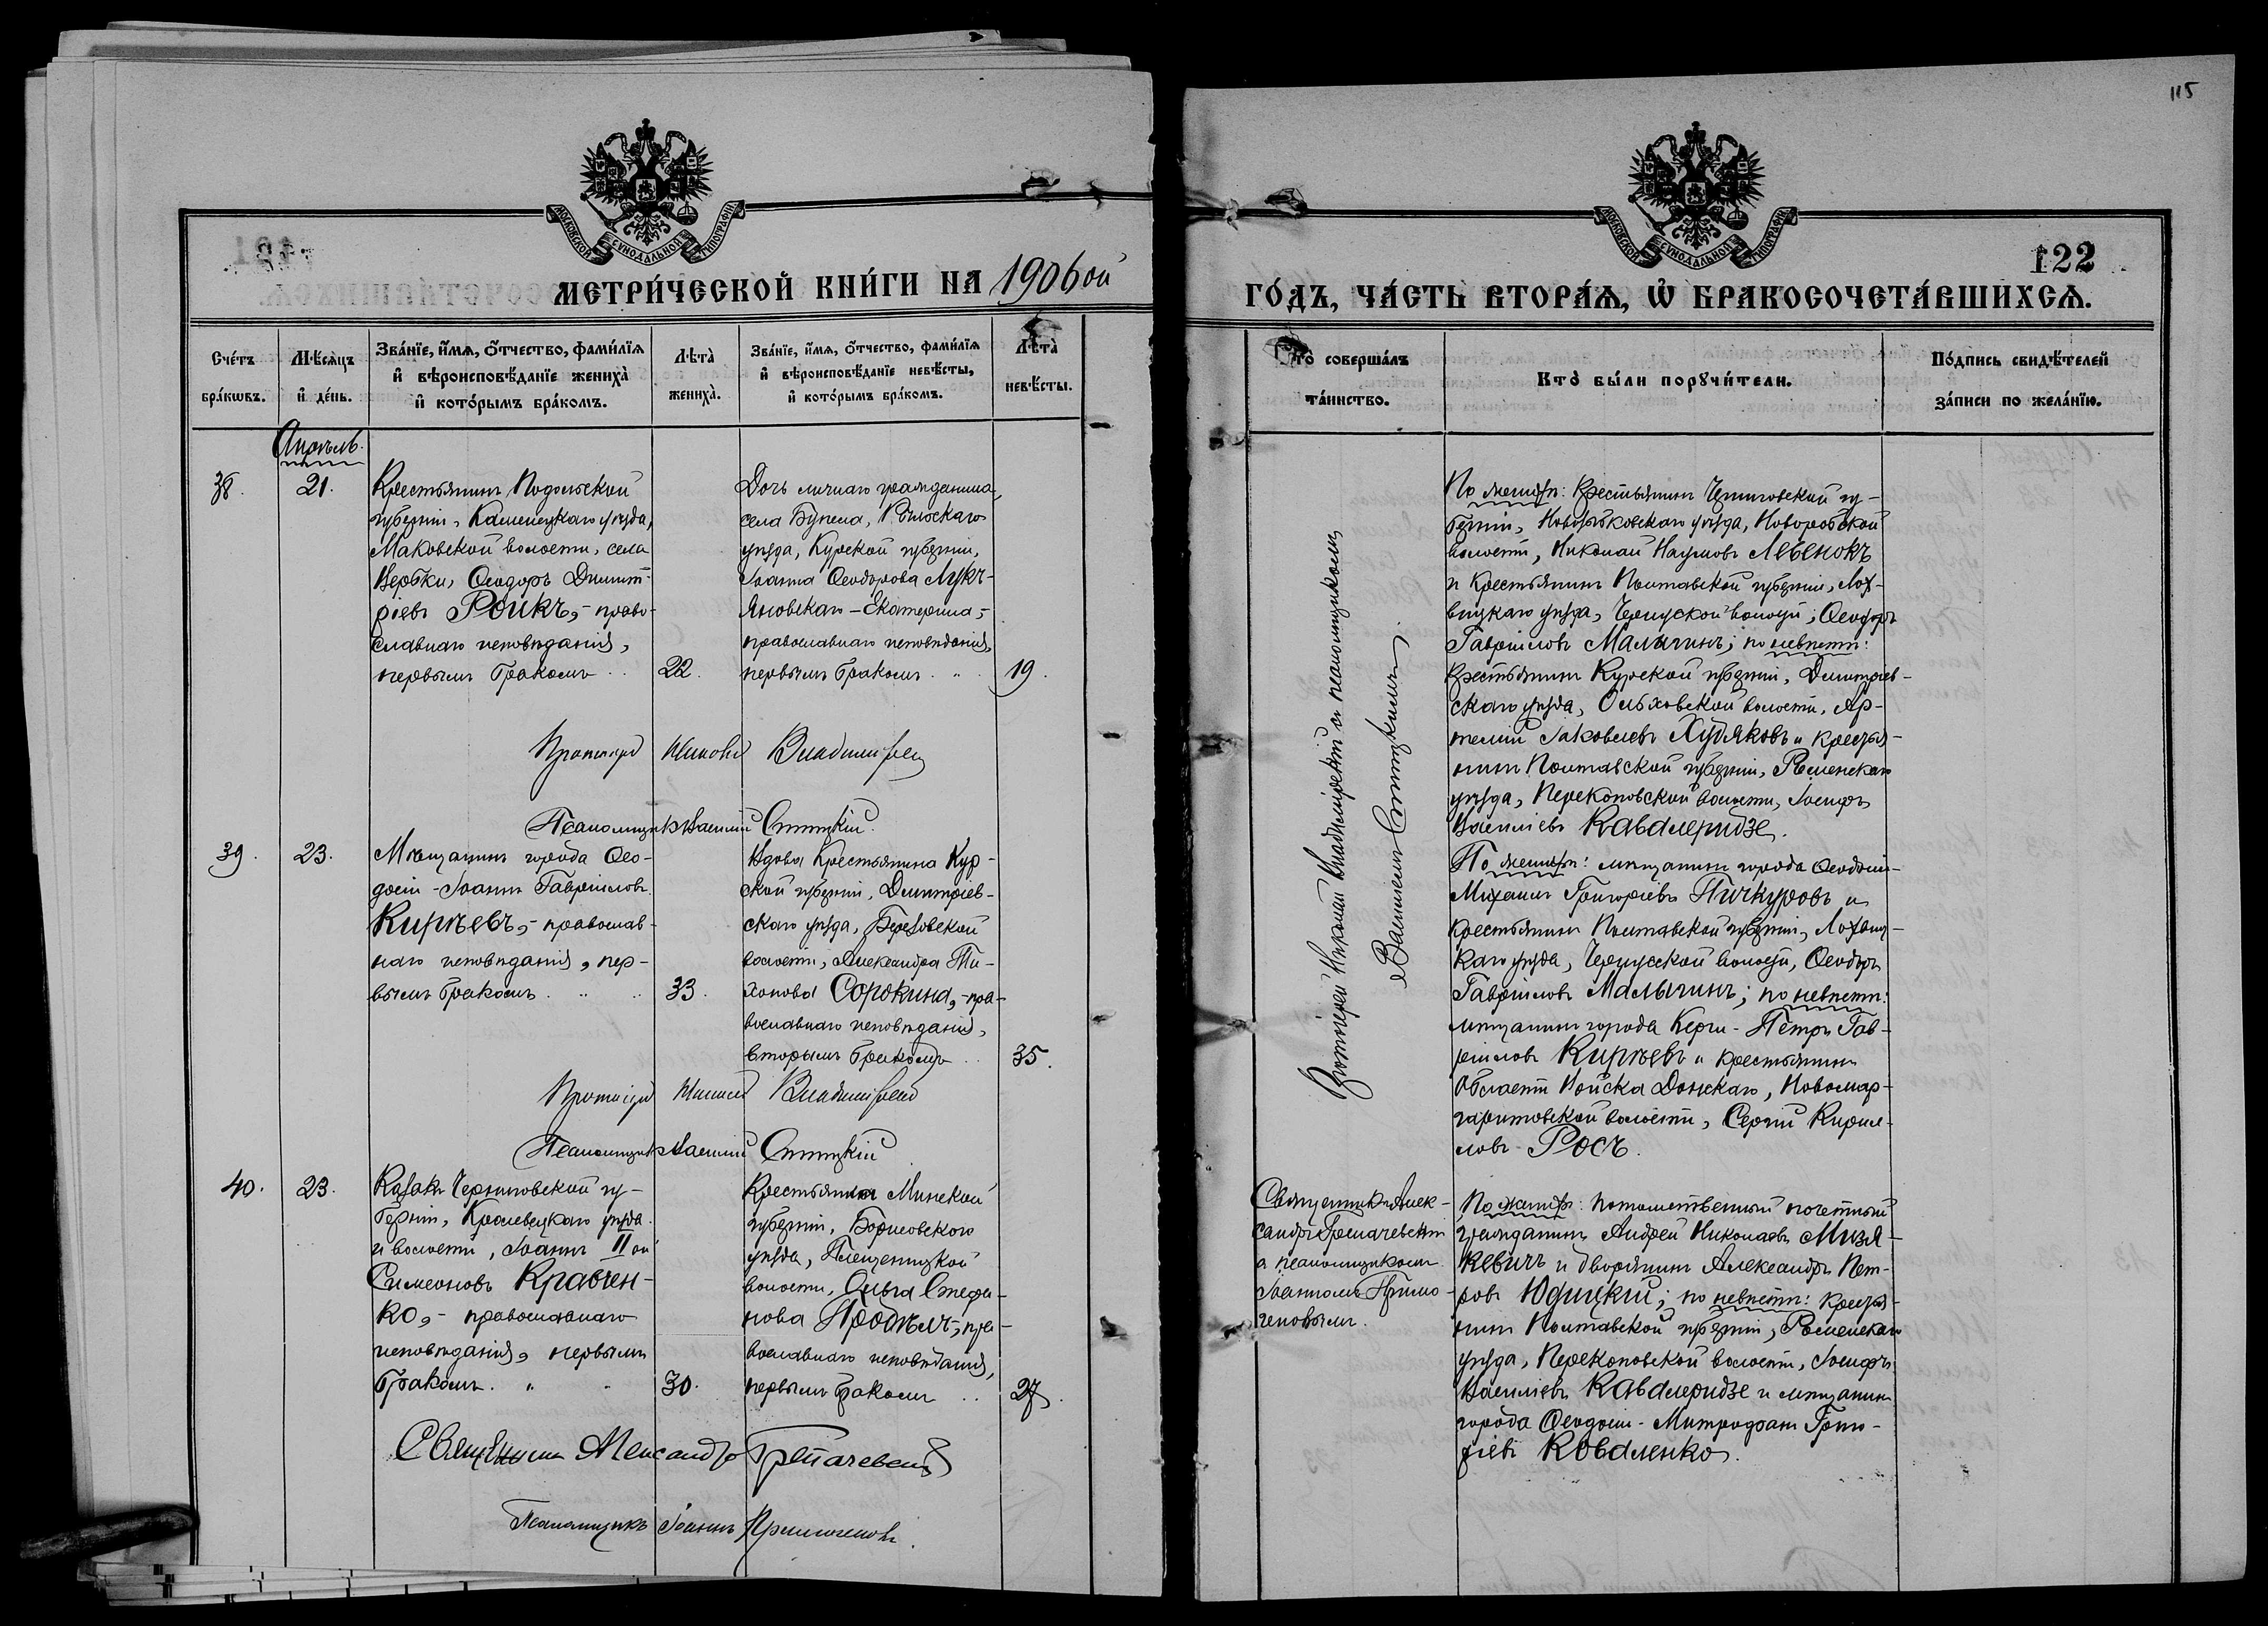 115
МОСКОВСКОЙ СѴНОДАЛЬНОЙ ТИПОГРАФІИ
МОСКОВСКОЙ СѴНОДАЛЬНОЙ ТИПОГРАФІИ
122
МЕТРИ́ЧЕСКОЙ КНИ́ГИ НА 1906ой
ГО́ДЪ, ЧА́СТЬ ВТОРА́Ѧ, Ѡ БРАКОСОЧЕТА́ВШИХСѦ.
Сче́тъ бра́кωвъ.
Мѣ́сяцъ и҆ де́нь.
Зва́нїе, и҆́мя, ѻ҆́тчество, фами́лїя
и҆ вѣроисповѣ́данїе жениха̀
и҆ кото́рымъ бра́комъ.
Лѣта̀ жениха̀.
Зва́нїе, и҆́мя, ѻ҆́тчество, фами́лїя
и҆ вѣроисповѣ́данїе невѣ́сты,
и҆ кото́рымъ бра́комъ.
Лѣта̀ невѣ́сты.
Кто̀ соверша́лъ
та́инство.
Кто̀ бы́ли порꙋчи́тели.
По́дпись свидѣ́телей
за́писи по жела́нїю.
Апрѣль.
38.
21.
Крестьянинъ Подольской
губерніи, Каменецкаго уѣзда,
Маковской волости, села
Вербки, Ѳеодоръ Димит-
ріевъ Роикъ,- право-
славнаго исповѣданія,
первымъ бракомъ
22.
Дочь личнаго гражданина,
села Бупела, Рыльскаго
уѣзда, Курской губерніи,
Іоанна Ѳеодорова Лукъ-
яновскаго - Екатерина,-
православнаго исповѣданія,
первымъ бракомъ
19.
Протоіерей Николай Владимірскій
Псаломщикъ Василій Стницкій.
39.
23.
Мѣщанинъ города Ѳео-
досіи - Іоаннъ Гавріиловъ
Кирѣевъ,- православ-
наго исповѣданія, пер-
вымъ бракомъ
33.
Вдова крестьянина Кур-
ской губерніи, Димитріев-
скаго уѣзда, Березовской
волости, Александра Ти-
хонова Сорокина,- пра-
вославнаго исповѣданія,
вторымъ бракомъ
35.
Протоіерей Николай Владимірскій
Псаломщикъ Василій Стницкій
40.
23.
Казакъ Черниговской гу-
берніи, Кролевецкаго уѣзда
и волости, Іоаннъ II ой
Симеоновъ Кравчен-
ко,- православнаго
исповѣданія, первымъ
бракомъ.
30.
Крестьянка Минской
губерніи, Борисовскаго
уѣзда, Плещеницкой
волости, Ольга Стефа-
нова Продѣлъ,- пра-
вославнаго исповѣданія,
первымъ бракомъ
27.
Священникъ Александръ Гремачевскій
Псаломщикъ Іоаннъ Примоченовъ.
Протоіерей Николай Владимірскій и псаломщикомъ
Василіемъ Стницкимъ.
По женихѣ: крестьянинъ Черниговской гу-
берніи, Новозыбковскаго уѣзда, Новоробской
волости, Николай Наумовъ Лебенокъ
и крестьянинъ Полтавской губерніи, Лох-
вицкаго уѣзда, Чернуской волости, Ѳеодоръ
Гавріиловъ Малыгинъ; по невѣстѣ:
крестьянинъ Курской губерніи, Димитріев-
скаго уѣзда, Ольховской волости, Ар-
темій Іаковлевъ Худяковъ и крестья-
нинъ Полтавской губерніи, Роменскаго
уѣзда, Перекоповской волости, Іосифъ
Василіевъ Кавалеридзе.
По женихѣ: мѣщанинъ города Ѳеодосіи-
Михаилъ Григоріевъ Пичкуровъ и
крестьянинъ Полтавской губерніи, Лохвиц-
каго уѣзда, Чернусской волости, Ѳеодоръ
Гавріиловъ Малыгинъ; по невѣстѣ:
мѣщанинъ города Керчи - Петръ Гав-
ріиловъ Кирѣевъ и крестьянинъ
Области Войска Донскаго, Новомар-
гаритовской волости, Сергій Кирил-
ловъ - Рось.
Священникъ Алек-
сандръ Гремачевскій
и псаломщикомъ
Іоанномъ Примо-
ченовымъ.
По женихѣ: потомственный почетный
гражданинъ Андрей Николаевъ Мизя-
кевичъ и дворянинъ Александръ Пет-
ровъ Юдицкій; по невѣстѣ: крестья-
нинъ Полтавской губерніи, Роменскаго
уѣзда, Перекоповской волости, Іосифъ
Василіевъ Кавалеридзе и мѣщанинъ
города Ѳеодосіи - Митрофанъ Григо-
ріевъ Коваленко.